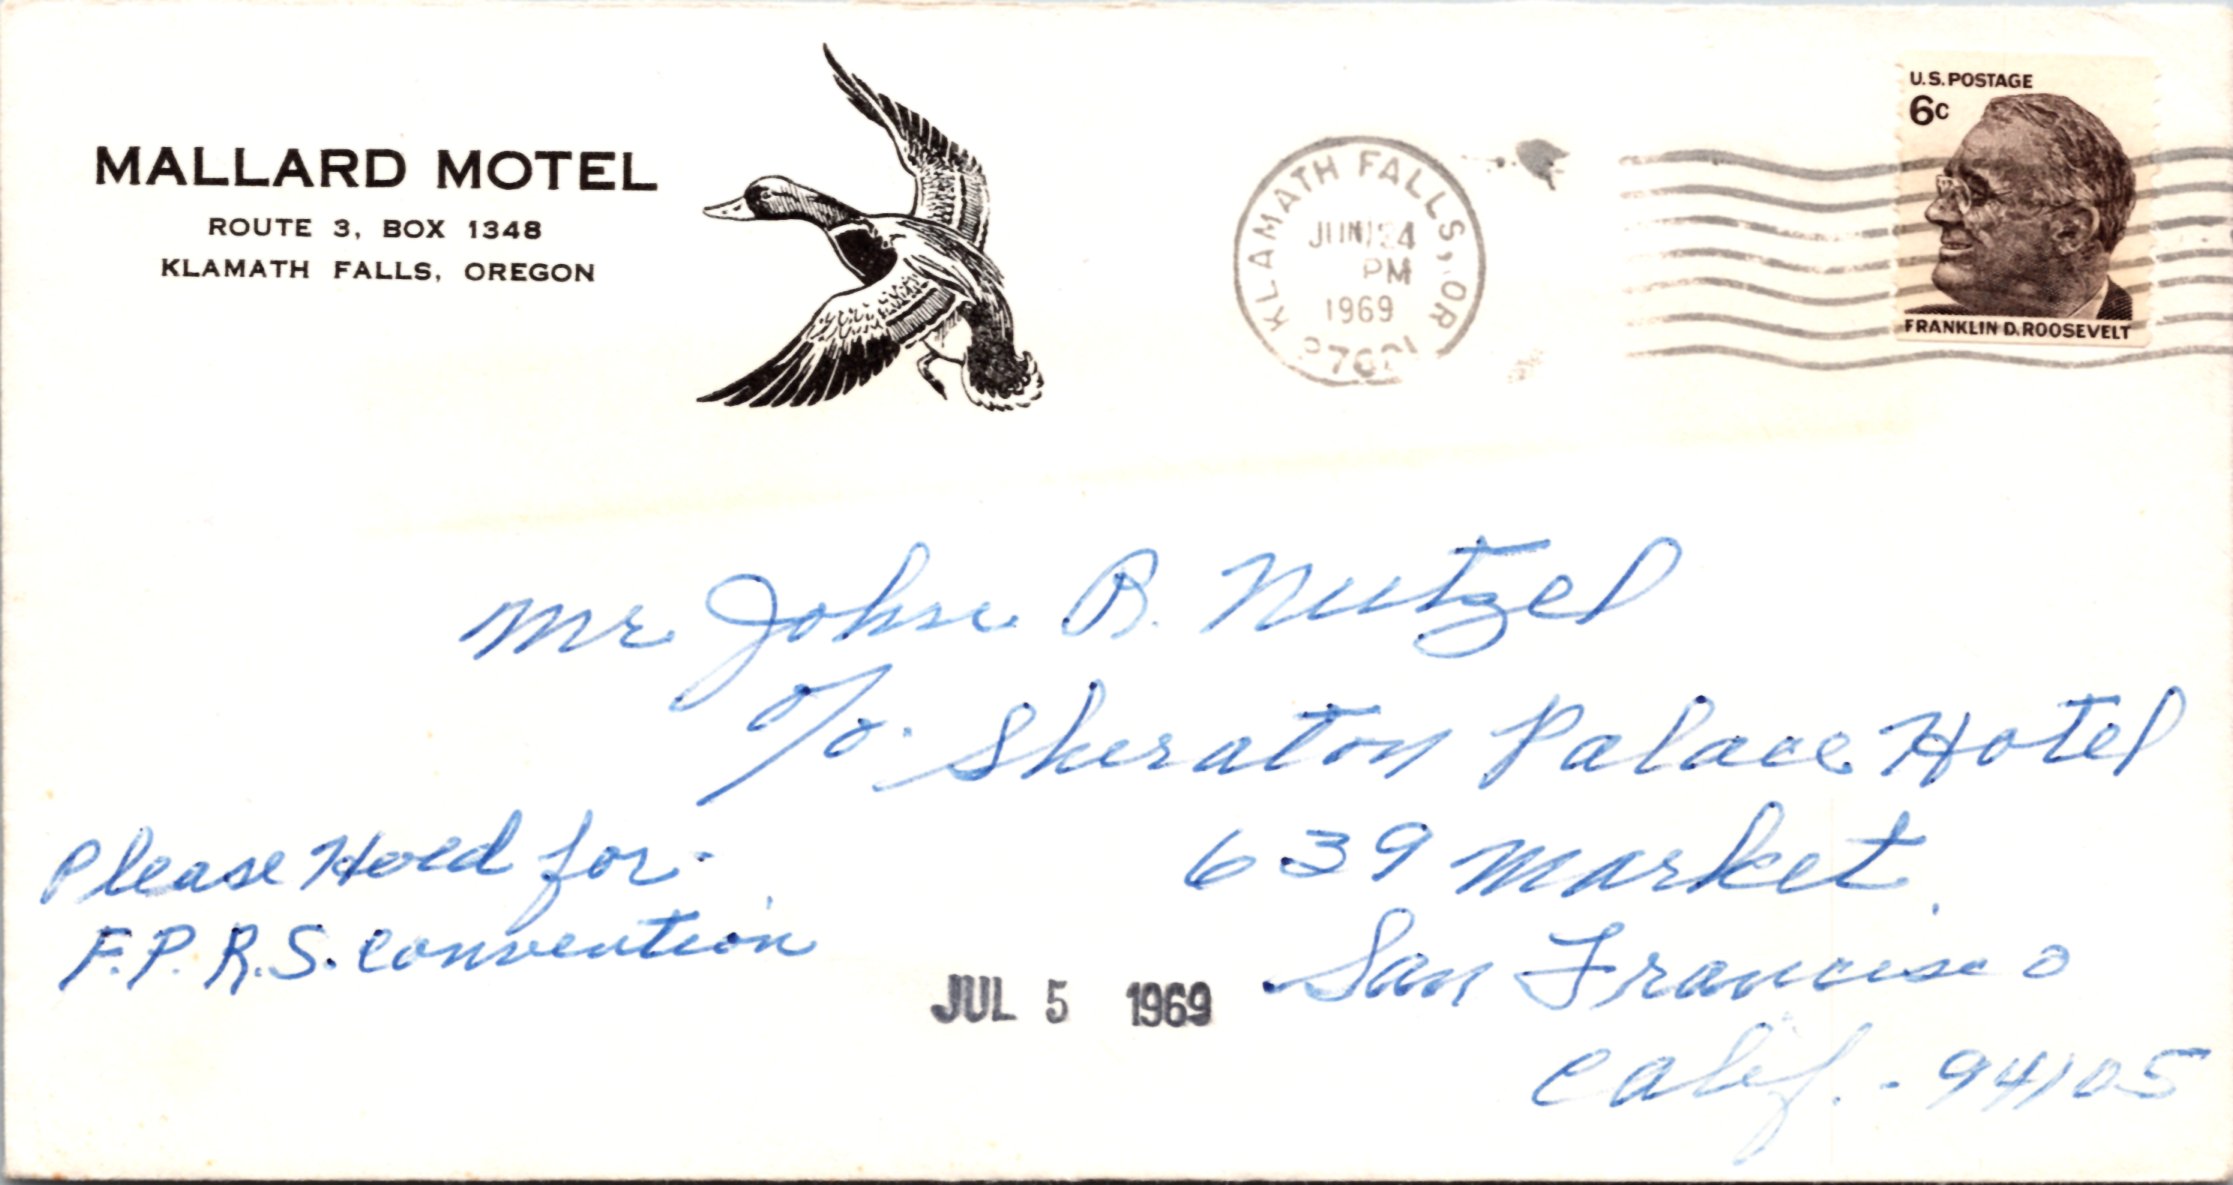 MALLARD MOTEL
ROUTE 3, BOX 1348
KLAMATH FALLS, OREGON
KLAMATH FALLS, OR
JUN 24
PM
1969
U.S. POSTAGE
6c
FRANKLIN D. ROOSEVELT
Mr John B. Nutzel
c/o. Sheraton Palace Hotel
639 Market
San Francisco
Calif. - 94105
Please Hold for
F.P.R.S. Convention
JUL 5 1969